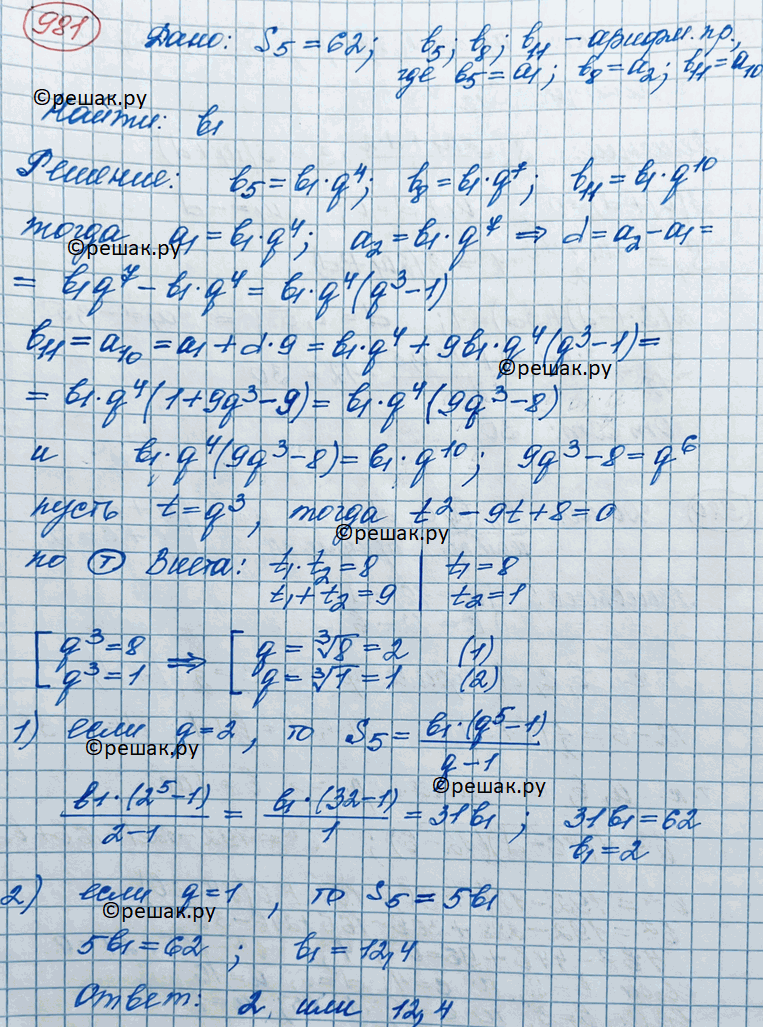 981
Дано: S₅ = 62; b₅; b₈; b₁₁ – арифм. пр.,
где b₅ = a₁; b₈ = a₂; b₁₁ = a₁₀
©решак.ру
Найти: b₁
Решение: b₅ = b₁·q⁴; b₈ = b₁·q⁷; b₁₁ = b₁·q¹⁰
тогда a₁ = b₁·q⁴; a₂ = b₁·q⁷ ⇒ d = a₂ – a₁ =
©решак.ру
= b₁q⁷ – b₁·q⁴ = b₁·q⁴(q³ – 1)
b₁₁ = a₁₀ = a₁ + d·9 = b₁·q⁴ + 9b₁·q⁴(q³ – 1) =
©решак.ру
= b₁·q⁴(1 + 9q³ – 9) = b₁·q⁴(9q³ – 8)
и b₁·q⁴(9q³ – 8) = b₁·q¹⁰; 9q³ – 8 = q⁶
пусть t = q³, тогда t² – 9t + 8 = 0
©решак.ру
по Т Виета: t₁·t₂ = 8 | t₁ = 8
t₁ + t₂ = 9 | t₂ = 1
[ q³ = 8 ⇒ [ q = ∛8 = 2 (1)
q³ = 1 q = ∛1 = 1 (2)
1) если q = 2, то S₅ = b₁·(q⁵ – 1)/(q – 1)
©решак.ру
©решак.ру
b₁·(2⁵ – 1)/(2 – 1) = b₁·(32 – 1)/1 = 31b₁; 31b₁ = 62
b₁ = 2
2) если q = 1, то S₅ = 5b₁
©решак.ру
5b₁ = 62; b₁ = 12,4
Ответ: 2 или 12,4